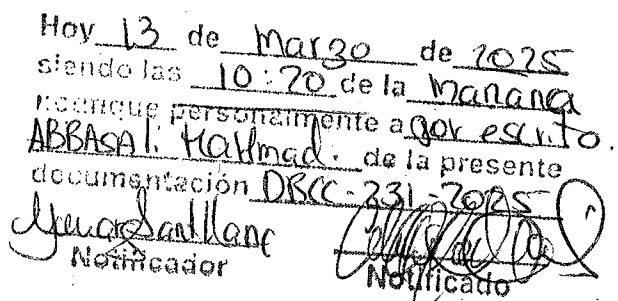 Hoy 13 de Marzo de 2025
siendo las 10:20 de la manana
personalmente a por escrito.
ABBASALi Mahmad. de la presente
documentación DRCC-231-2025
Santllane
Notificador
Notificado